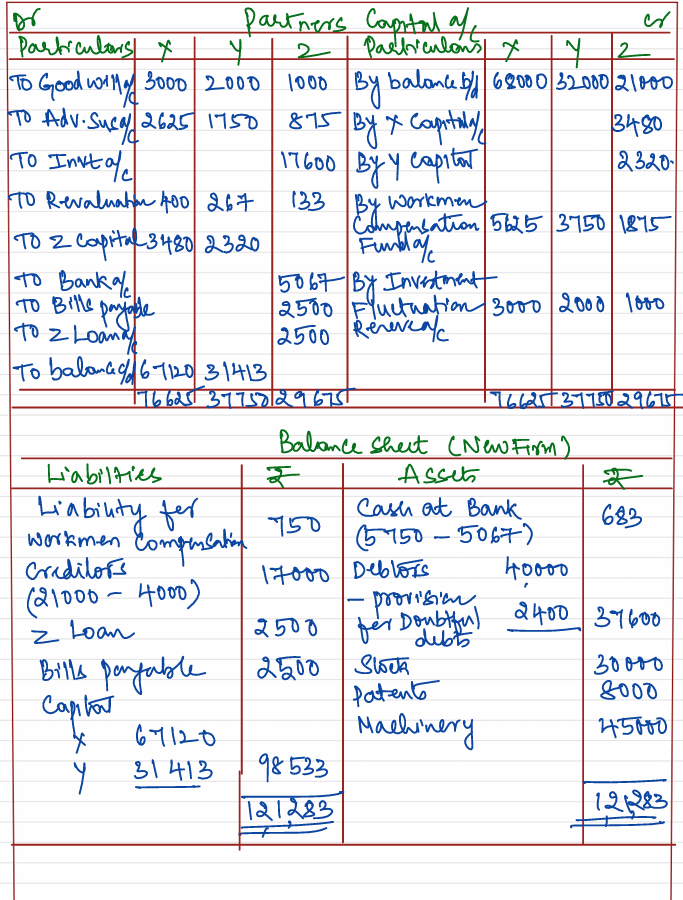 Dr Partners Capital a/c cr
Particulars X Y Z Particulars X Y Z
To Goodwill a/c 3000 2000 1000 By balance b/d 68000 32000 21000
To Adv. Sus a/c 2625 1750 875 By X Capital a/c 3480
To Invt a/c 17600 By Y Capital 2320
To Revaluation 400 267 133 By Workmen
Compensation 5625 3750 1875
To Z Capital 3480 2320 Fund a/c
To Bank a/c 5067 By Investment
To Bills payable 2500 Fluctuation 3000 2000 1000
To Z Loan a/c 2500 Rerve a/c
To balance c/d 67120 31413
76625 37750 29675 76625 37750 29675
Balance Sheet (New Firm)
Liabilties ₹ Assets ₹
Liability for Cash at Bank 683
Workmen Compensation 750 (5750 - 5067)
Creditors 17000 Debtors 40000
(21000 - 4000) - provision
for Doubtful 2400 37600
debts
Z Loan 2500
Bills payable 2500 Stock 30000
Capital Patents 8000
X 67120 Machinery 45000
Y 31413 98533
121,283 121,283